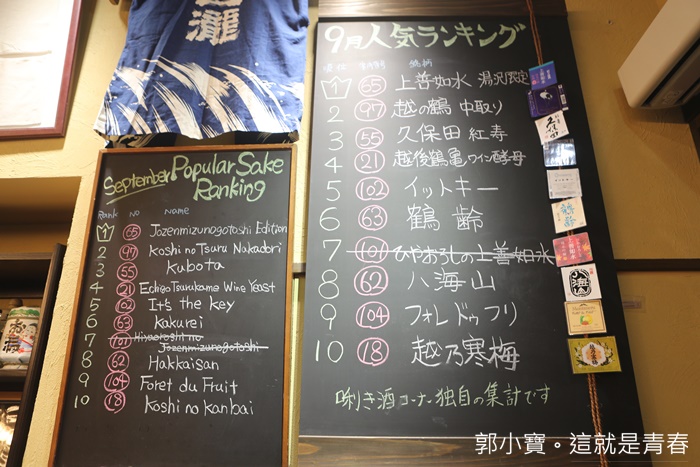 瀧
September Popular Sake
Ranking
Rank No Name
1 65 Jozenmizunogotoshi Edition
2 97 Koshi no Tsuru Nakadori
3 55 Kubota
4 21 Echigo Tsurukame Wine Yeast
5 102 It's the key
6 63 Kakurei
7 101 Hiyaoroshi no
Jozenmizunogotoshi
8 62 Hakkaisan
9 104 Foret du Fruit
10 18 Koshi no kanbai
9月人気ランキング
銘柄
1 65 上善如水 湯沢限定
2 97 越の鶴 中取り
3 55 久保田 紅寿
4 21 越後鶴亀ワイン酵母
5 102 イットキー
6 63 鶴齢
7 101 ひやおろしの上善如水
8 62 八海山
9 104 フォレドゥフリ
10 18 越乃寒梅
唎き酒コーナー独自の集計です
久保田
鶴齢
八海山
郭小寶。這就是青春